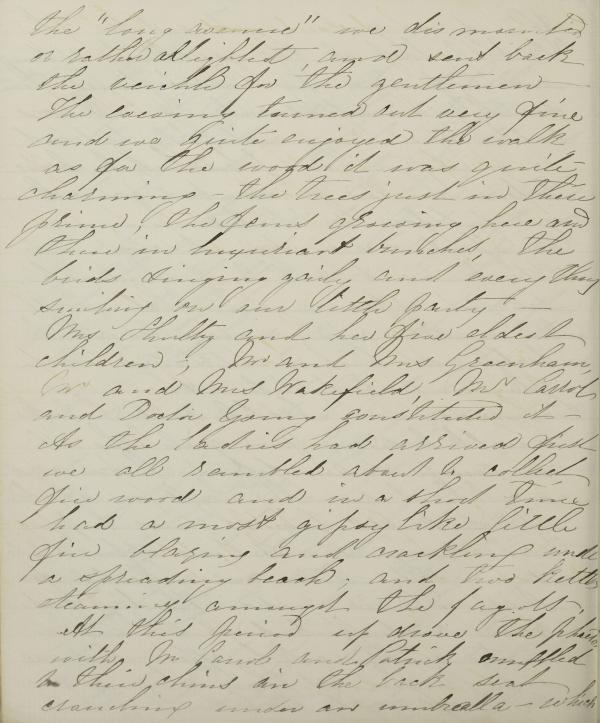 the "long avenue" we dismounted
or rather allighted, and sent back
the veichle for the gentlemen –
The evening turned out very fine
and we quite enjoyed the walk
as for the wood it was quite
charming – the trees just in their
prime, the ferns growing here and
there in luxuriant bunches, the
birds singing gaily and every thing
smiling on our little party –
Mrs and her five eldest
children; Mr and Mrs Greenham,
Mr and Mrs Wakefield, Mr Carrol
and Doctor Going constituted it –
As the ladies had arrived first
we all rambled about to collect
fire wood and in a short time
had a most gipsy like little
fire blazing and crackling under
a spreading beach; and two kettles
steaming amongst the fagotts.
At this period up drove the
with Mr and Patrick muffled
to their chins in the back seat
crouching under an umbrella – which